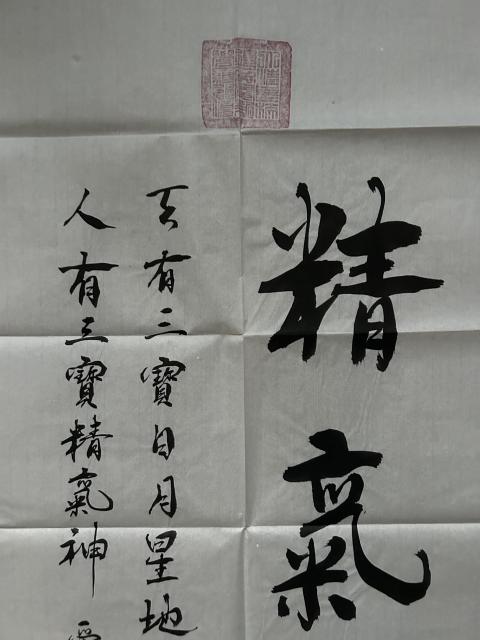 精氣
天有三寶日月星地
人有三寶精氣神